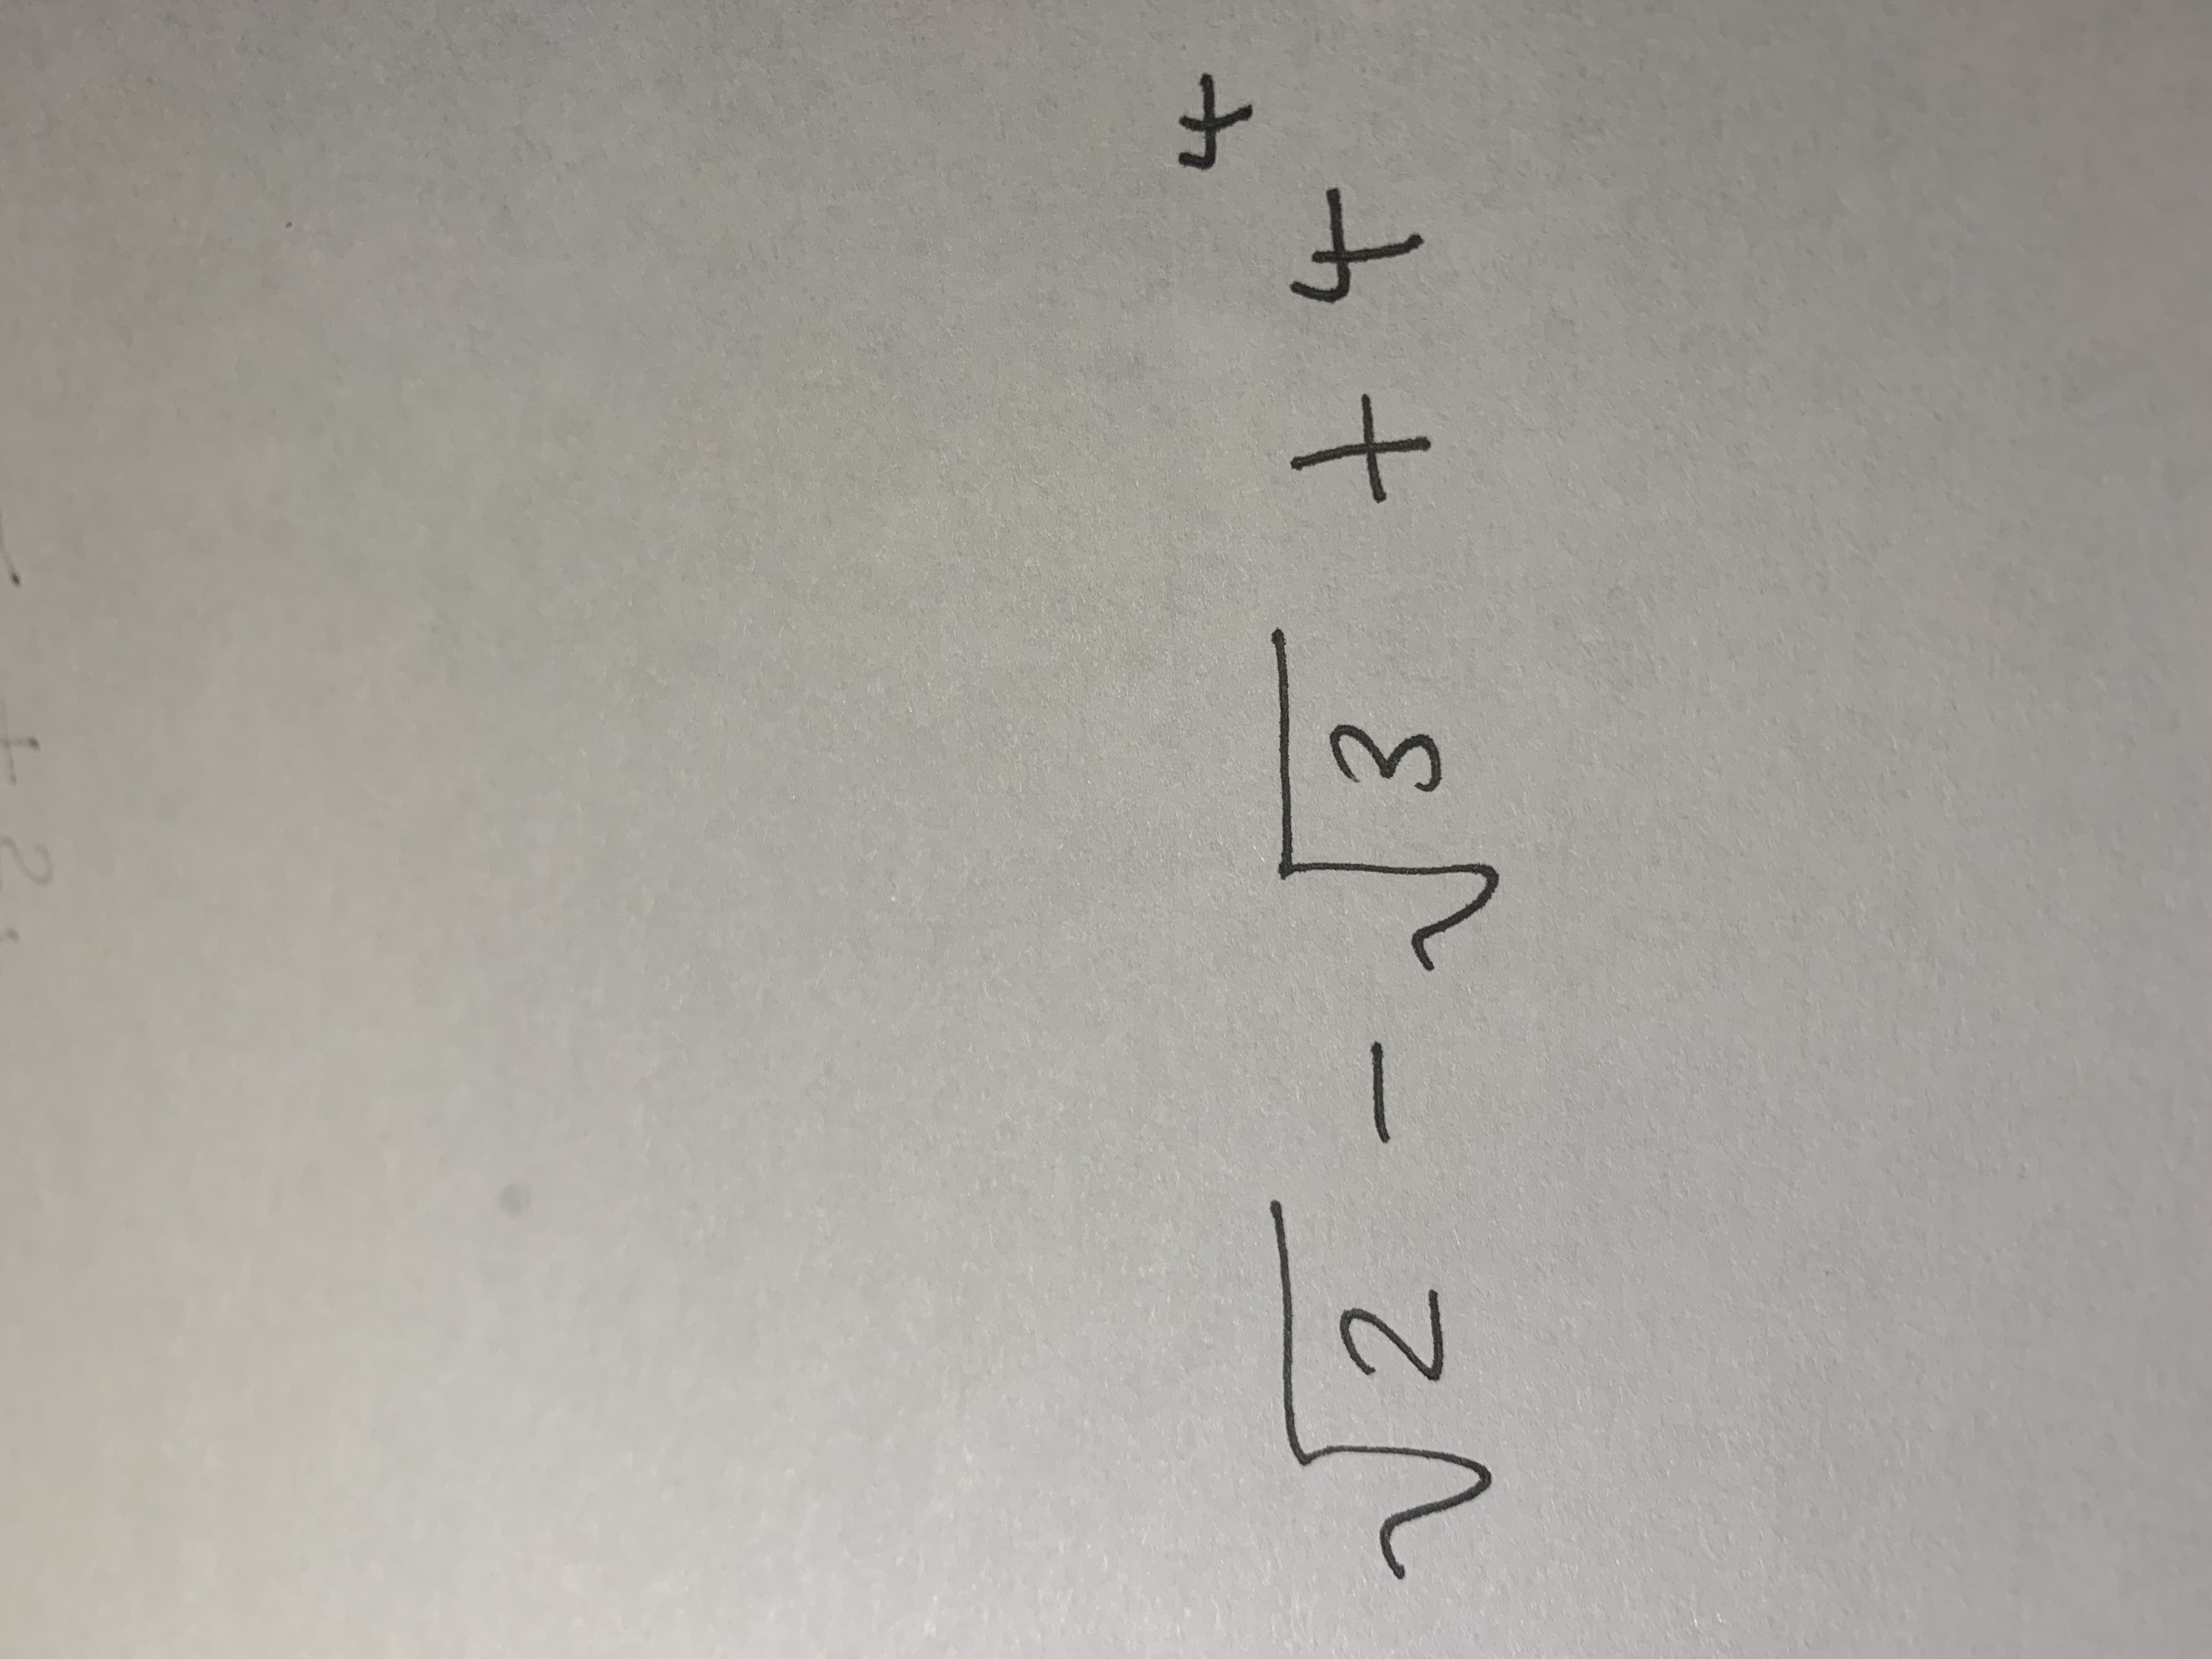 √2 - √3 + 4⁴